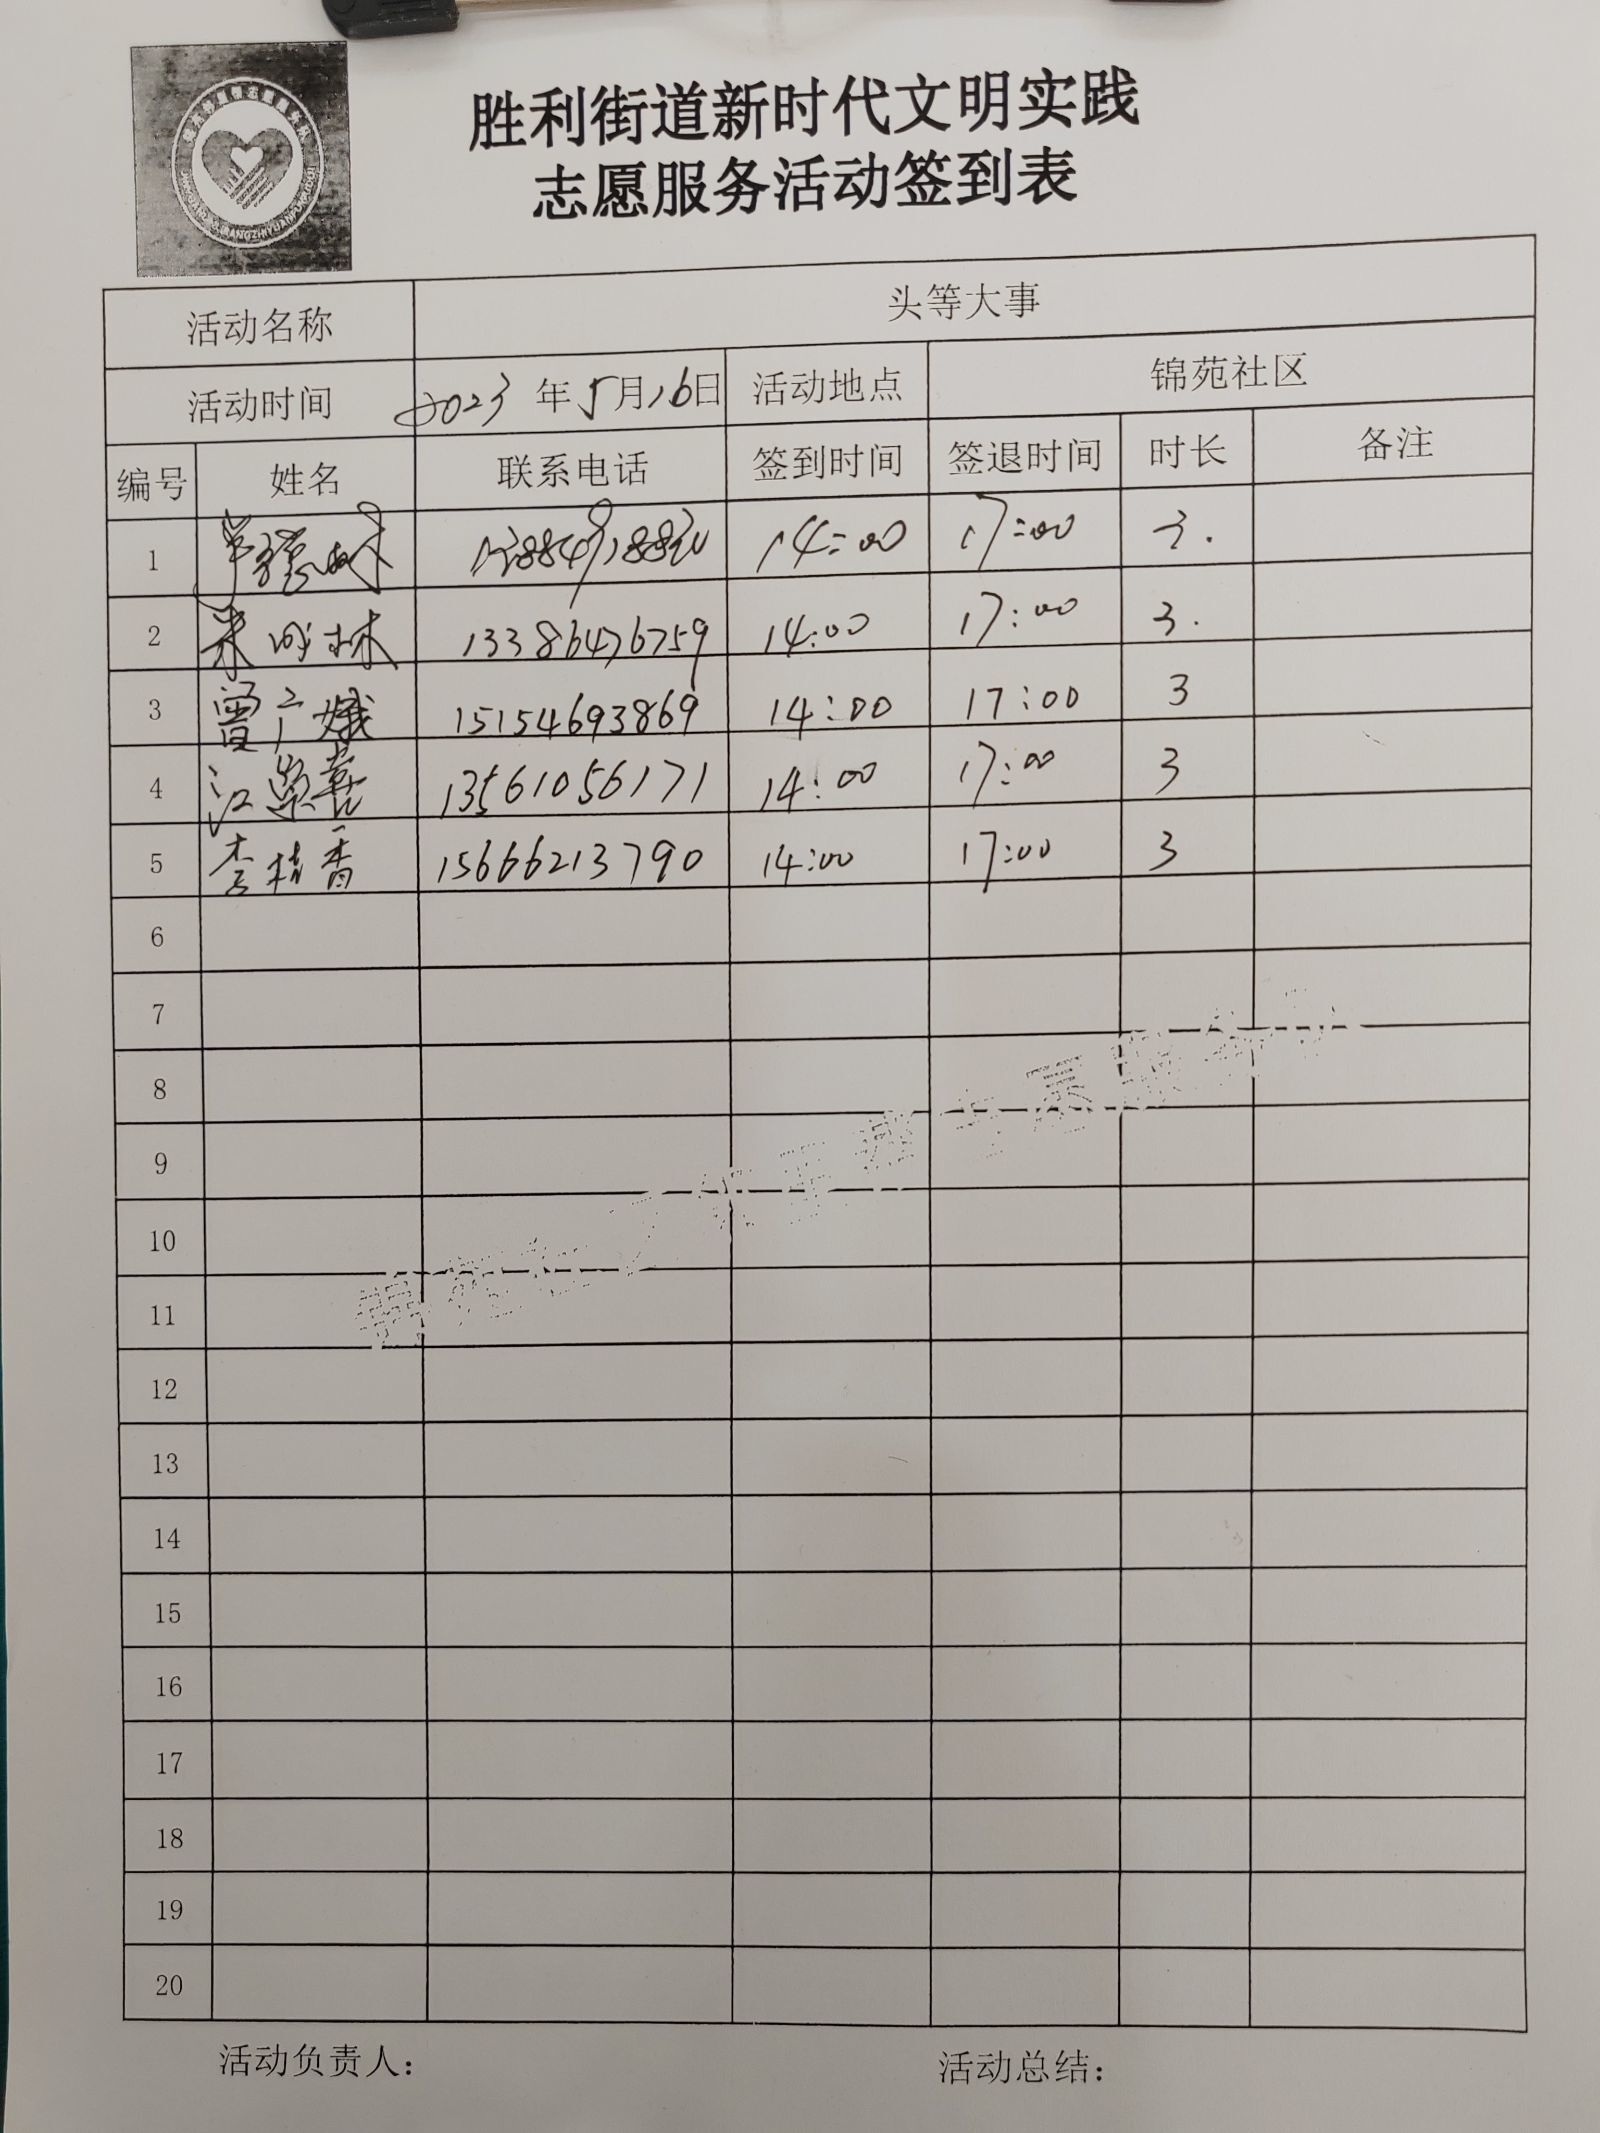 胜利街道新时代文明实践
志愿服务活动签到表
活动名称 头等大事
活动时间 2023年5月16日 活动地点 锦苑社区
编号 姓名 联系电话 签到时间 签退时间 时长 备注
1 14:00 17:00 3.
2 13386476759 14:00 17:00 3.
3 曾广娥 15154693869 14:00 17:00 3
4 江崇喜 13561056171 14:00 17:00 3
5 李桂香 15666213790 14:00 17:00 3
6
7
8
9
10
11
12
13
14
15
16
17
18
19
20
活动负责人: 活动总结: